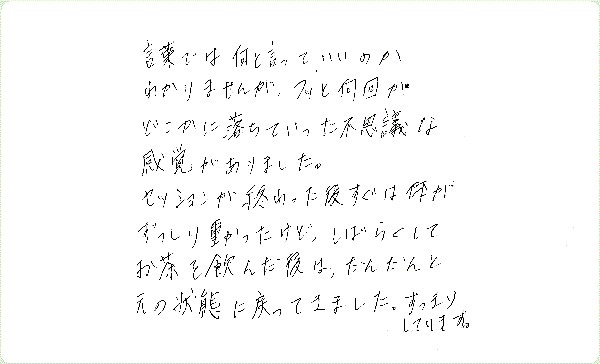 言葉では何と言っていいのか
わかりませんが、フッと何回か
どこかに落ちていった不思議な
感覚がありました。
セッションが終わった後すぐは体が
ずっしり重かったけど、しばらくして
お茶を飲んだ後は、だんだんと
元の状態に戻ってきました。すっきり
してります。